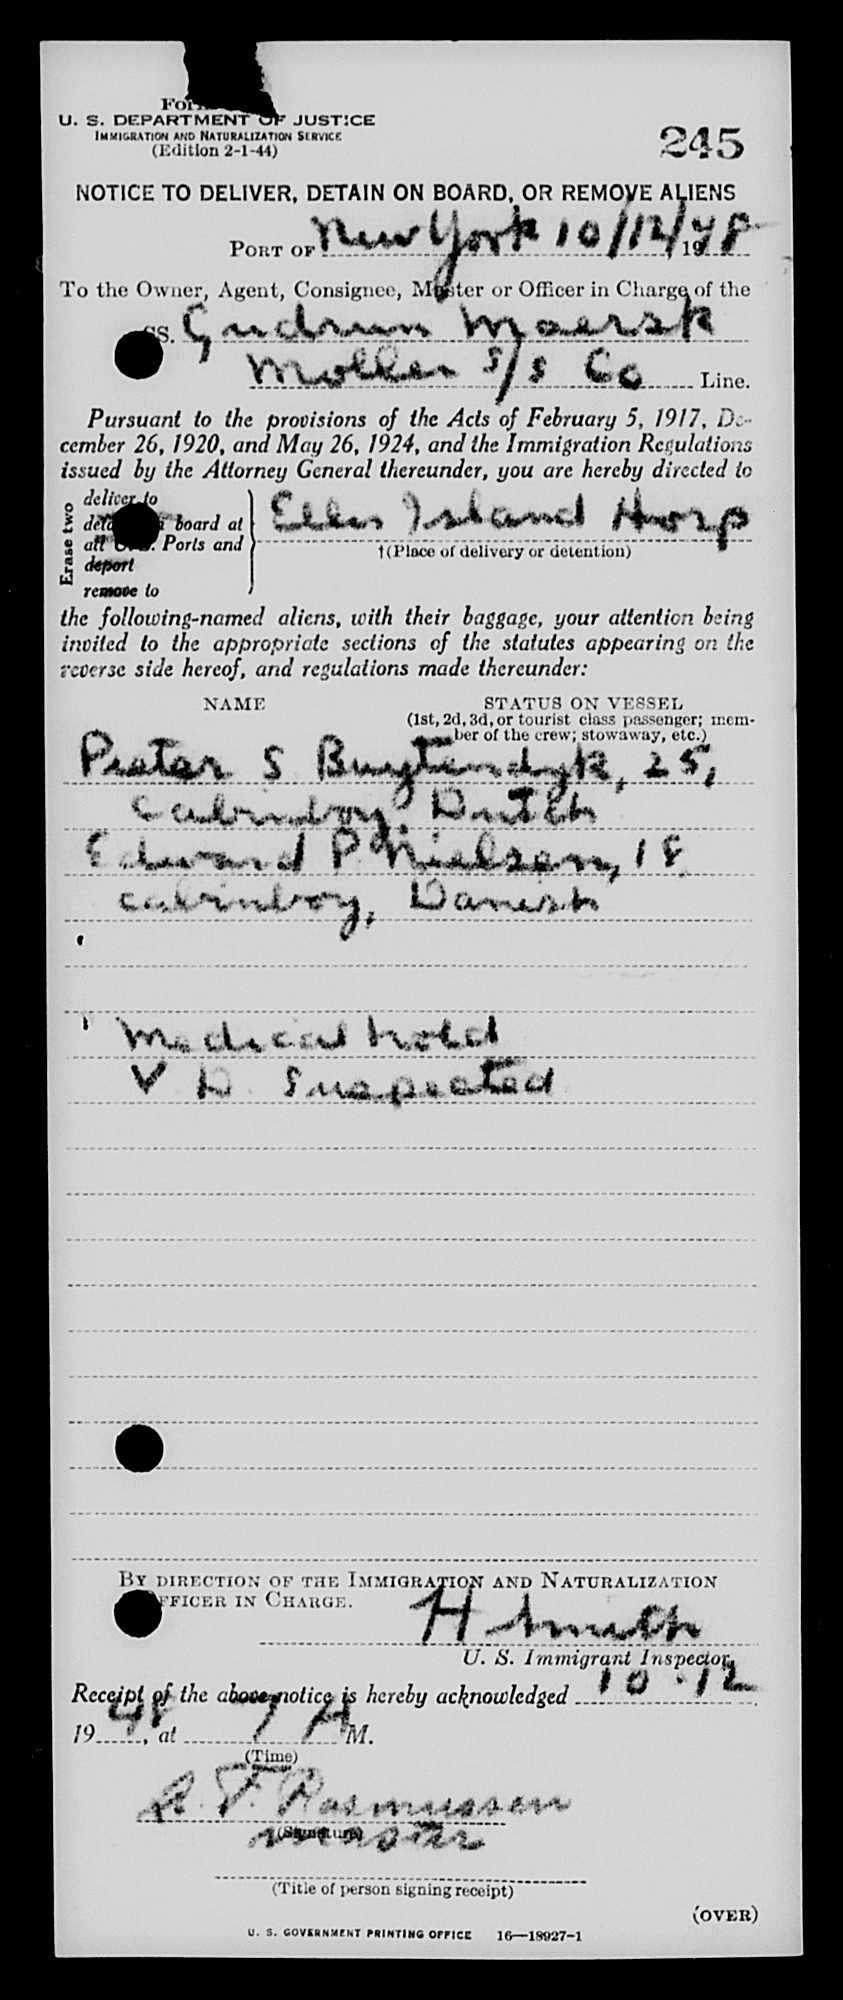 U. S. DEPARTMENT OF JUSTICE
IMMIGRATION AND NATURALIZATION SERVICE
(Edition 2-1-44)
245
NOTICE TO DELIVER, DETAIN ON BOARD, OR REMOVE ALIENS
PORT OF New York 10/12/1948
To the Owner, Agent, Consignee, Master or Officer in Charge of the
SS. Gudrun Maersk
Moller S/S Co Line.
Pursuant to the provisions of the Acts of February 5, 1917, De-
cember 26, 1920, and May 26, 1924, and the Immigration Regulations
issued by the Attorney General thereunder, you are hereby directed to
Erase two
deliver to
board at
all Ports and
deport
remove to
Ellis Island Hosp
†(Place of delivery or detention)
the following-named aliens, with their baggage, your attention being
invited to the appropriate sections of the statutes appearing on the
reverse side hereof, and regulations made thereunder:
NAME STATUS ON VESSEL
(1st, 2d, 3d, or tourist class passenger; mem-
ber of the crew; stowaway, etc.)
Pieter S Buytendyk, 25,
Cabinboy, Dutch
Edward P Nielsen, 18,
cabinboy, Danish
Medical hold
V D. Suspected
BY DIRECTION OF THE IMMIGRATION AND NATURALIZATION
OFFICER IN CHARGE.
H Smith
U. S. Immigrant Inspector.
Receipt of the above notice is hereby acknowledged 10-12,
1948, at 7 A M.
(Time)
A. F. Rasmussen
(Signature)
master
(Title of person signing receipt)
(OVER)
U. S. GOVERNMENT PRINTING OFFICE 16—18927-1